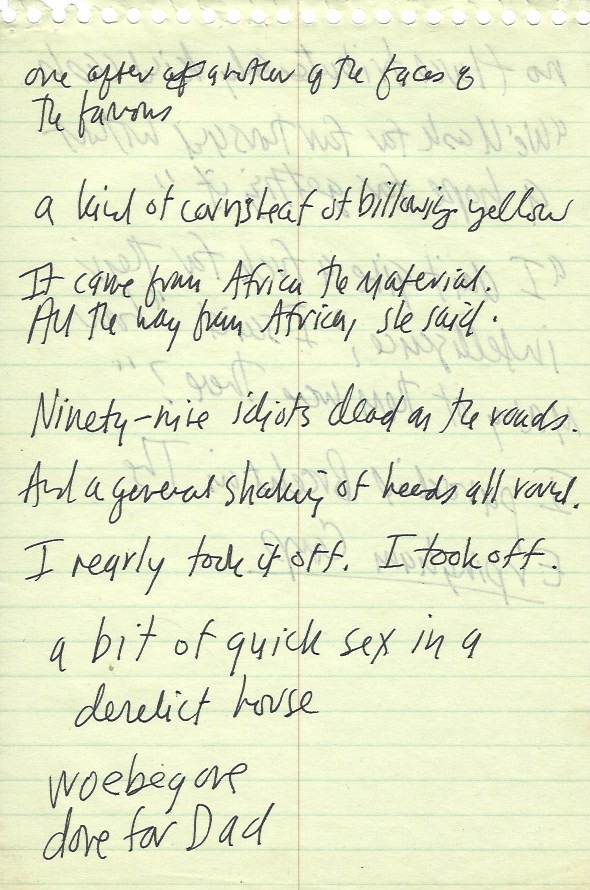 one after another of the faces of
the famous
a kind of cornsheaf of billowing yellow
It came from Africa the material.
All the way from Africa, she said.
Ninety-nine idiots dead on the roads.
And a general shaking of heads all round.
I nearly took it off. I took off.
a bit of quick sex in a
derelict house
woebegone
done for Dad